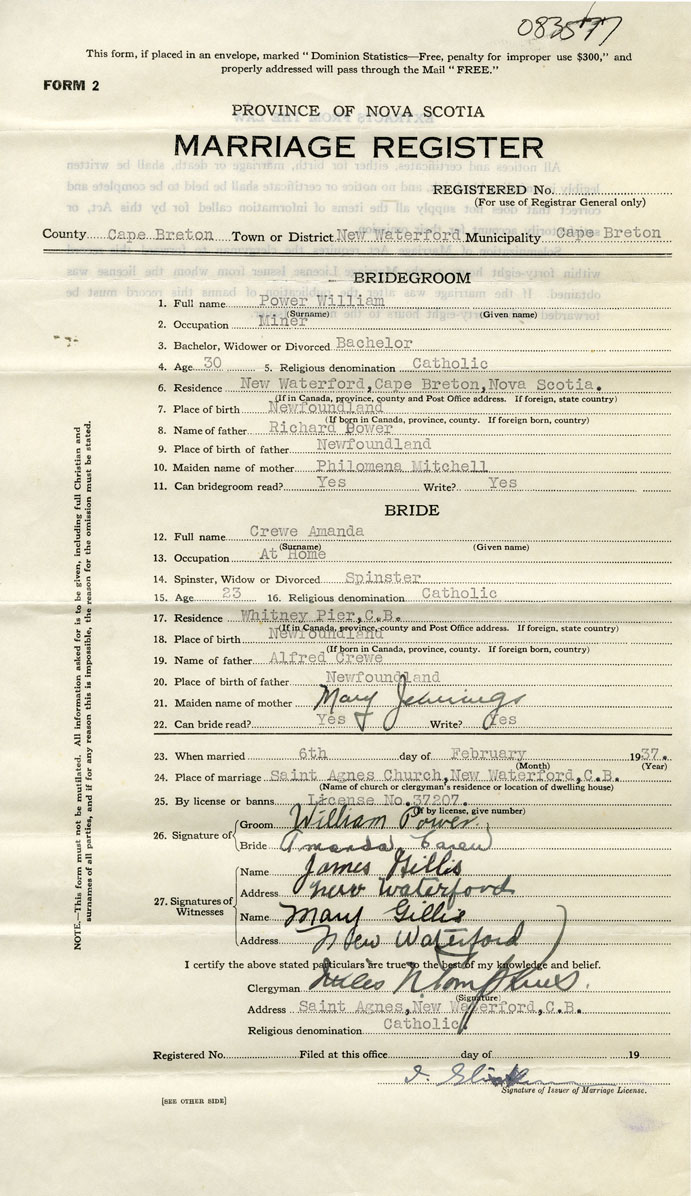 083577
This form, if placed in an envelope, marked "Dominion Statistics—Free, penalty for improper use $300," and
properly addressed will pass through the Mail "FREE."
FORM 2
PROVINCE OF NOVA SCOTIA
MARRIAGE REGISTER
REGISTERED No.
(For use of Registrar General only)
County Cape Breton Town or District New Waterford Municipality Cape Breton
BRIDEGROOM
1. Full name Power William
(Surname) (Given name)
2. Occupation Miner
3. Bachelor, Widower or Divorced Bachelor
4. Age 30 5. Religious denomination Catholic
6. Residence New Waterford, Cape Breton, Nova Scotia.
(If in Canada, province, county and Post Office address. If foreign, state country)
7. Place of birth Newfoundland
(If born in Canada, province, county. If foreign born, country)
8. Name of father Richard Power
9. Place of birth of father Newfoundland
10. Maiden name of mother Philomena Mitchell
11. Can bridegroom read? Yes Write? Yes
BRIDE
12. Full name Crewe Amanda
(Surname) (Given name)
13. Occupation At Home
14. Spinster, Widow or Divorced Spinster
15. Age 23 16. Religious denomination Catholic
17. Residence Whitney Pier, C.B.
(If in Canada, province, county and Post Office address. If foreign, state country)
18. Place of birth Newfoundland
(If born in Canada, province, county. If foreign born, country)
19. Name of father Alfred Crewe
20. Place of birth of father Newfoundland
21. Maiden name of mother Mary Jennings
22. Can bride read? Yes Write? Yes
23. When married 6th day of February 1937.
(Month) (Year)
24. Place of marriage Saint Agnes Church, New Waterford, C.B.
(Name of church or clergyman's residence or location of dwelling house)
25. By license or banns License No. 37207.
(If by license, give number)
26. Signature of Groom William Power
Bride Amanda Carew
27. Signatures of Witnesses Name James Gillis
Address New Waterford
Name Mary Gillis
Address New Waterford
I certify the above stated particulars are true to the best of my knowledge and belief.
Clergyman Miles N. Tompkins
(Signature)
Address Saint Agnes, New Waterford, C.B.
Religious denomination Catholic
Registered No. Filed at this office day of 19
Signature of Issuer of Marriage License.
[SEE OTHER SIDE]
NOTE.—This form must not be mutilated. All information asked for is to be given, including full Christian and
surnames of all parties, and if for any reason this is impossible, the reason for the omission must be stated.